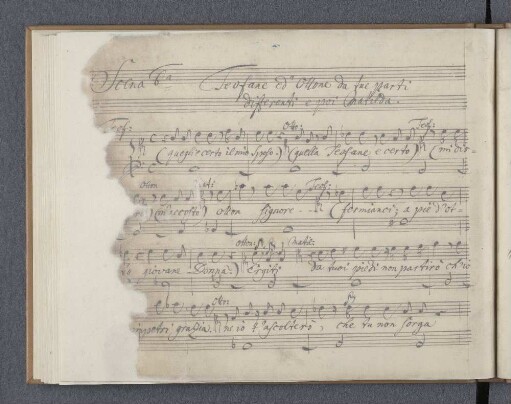 Scena 6a Teofane ed Ottone da due parti
differenti e poi Matilda.
Teof: Otto: Teof:
(quegli è certo il mio sposo.) (quella Teofane è certo) (mi vi-
Otton Teof:
Otton signore (fermianci; a piè d'ot-
otton Matil:
giovane Donna.) Ergiti da tuoi piedi non partirò ch'io
Otto:
impetri grazia. t'ascolterò; che tu non sorga